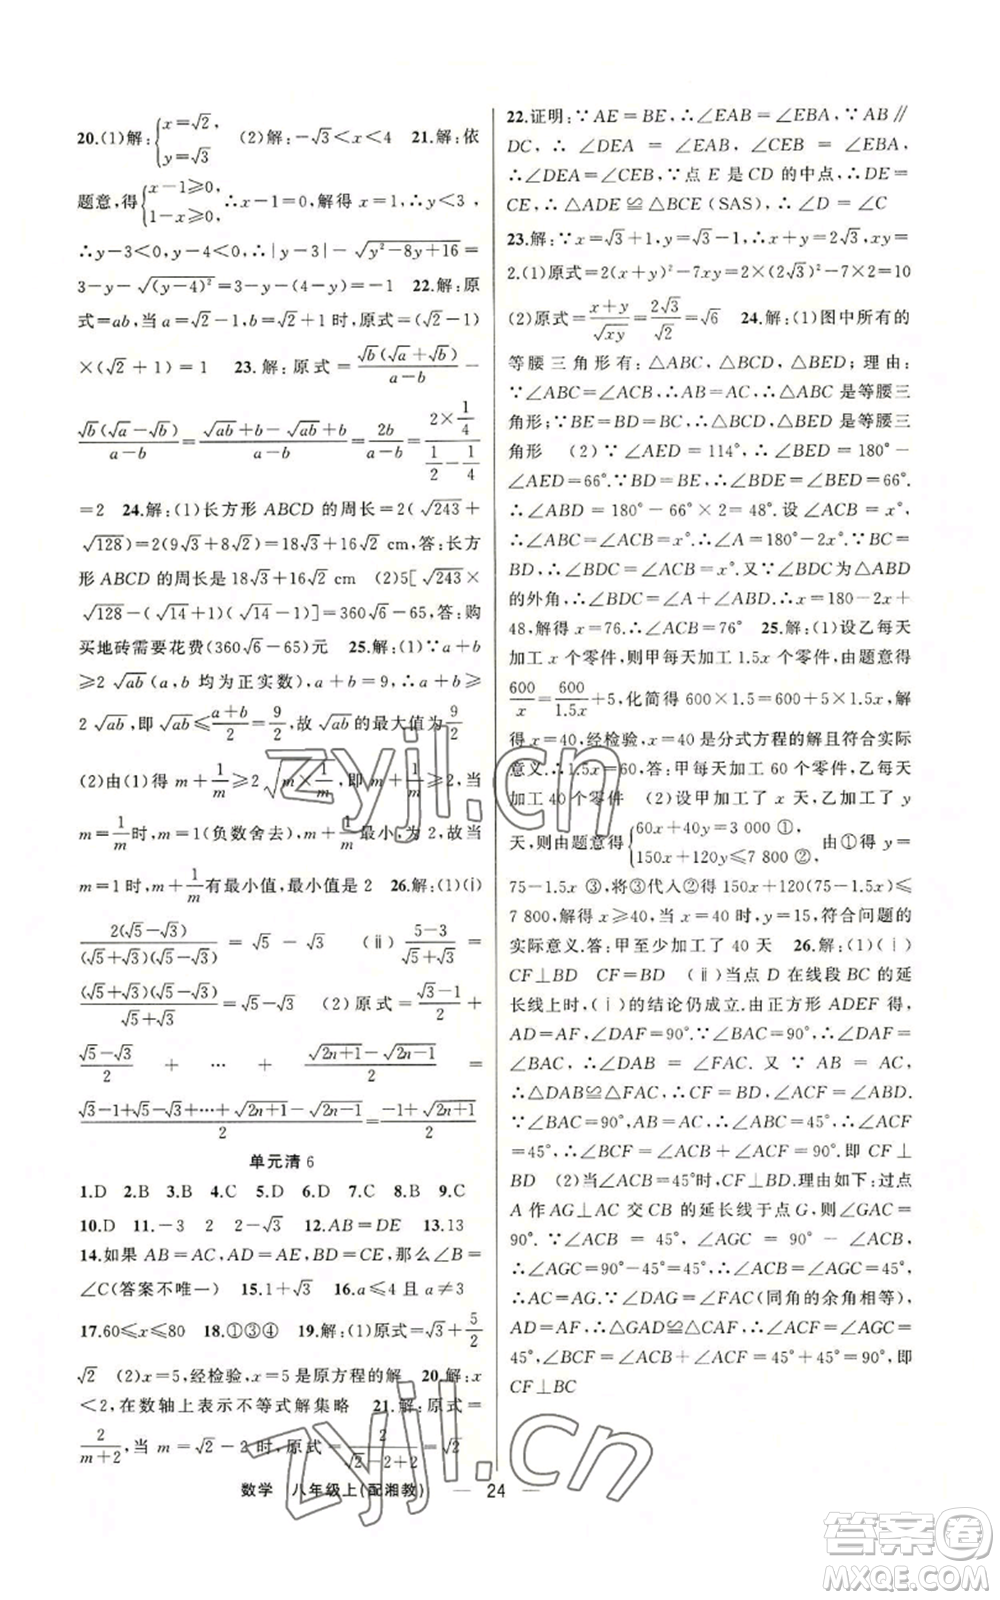 20.(1)解:{x=√2, y=√3 (2)解:-√3<x<4 21.解:依
题意,得{x-1≥0, 1-x≥0, ∴x-1=0,解得 x=1,∴y<3,
∴y-3<0,y-4<0,∴|y-3|-√(y²-8y+16)=
3-y-√((y-4)²)=3-y-(4-y)=-1 22.解:原
式=ab,当 a=√2-1,b=√2+1 时,原式=(√2-1)
×(√2+1)=1 23.解:原式=√b(√a+√b)/(a-b)-
√b(√a-√b)/(a-b)=(√ab+b-√ab+b)/(a-b)=2b/(a-b)=(2×1/4)/(1/2-1/4)
=2 24.解:(1)长方形 ABCD 的周长=2(√243+
√128)=2(9√3+8√2)=18√3+16√2 cm,答:长方
形 ABCD 的周长是 18√3+16√2 cm (2)5[√243×
√128-(√14+1)(√14-1)]=360√6-65,答:购
买地砖需要花费(360√6-65)元 25.解:(1)∵a+b
≥2√ab(a,b 均为正实数),∴a+b=9,∴a+b≥
2√ab,即√ab≤(a+b)/2=9/2,故√ab的最大值为9/2
(2)由(1)得 m+1/m≥2√(m×1/m),即 m+1/m≥2,当
m=1/m时,m=1(负数舍去),m+1/m最小为 2,故当
m=1 时,m+1/m有最小值,最小值是 2 26.解:(1)(ⅰ)
2(√5-√3)/((√5+√3)(√5-√3))=√5-√3 (ⅱ)(5-3)/(√5+√3)=
(√5+√3)(√5-√3)/(√5+√3)=√5-√3 (2)原式=(√3-1)/2+
(√5-√3)/2+…+(√(2n+1)-√(2n-1))/2=
(√3-1+√5-√3+…+√(2n+1)-√(2n-1))/2=(-1+√(2n+1))/2
单元清 6
1.D 2.B 3.B 4.C 5.D 6.D 7.C 8.B 9.C
10.D 11.-3 2 2-√3 12.AB=DE 13.13
14.如果 AB=AC,AD=AE,BD=CE,那么∠B=
∠C(答案不唯一) 15.1+√3 16.a≤4 且 a≠3
17.60≤x≤80 18.①③④ 19.解:(1)原式=√3+5/2
√2 (2)x=5,经检验,x=5 是原方程的解 20.解:x
<2,在数轴上表示不等式解集略 21.解:原式=
2/(m+2),当 m=√2-2 时,原式=2/(√2-2+2)=√2
22.证明:∵AE=BE,∴∠EAB=∠EBA,∵AB∥
DC,∴∠DEA=∠EAB,∠CEB=∠EBA,
∴∠DEA=∠CEB,∵点 E 是 CD 的中点,∴DE=
CE,∴△ADE≌△BCE(SAS),∴∠D=∠C
23.解:∵x=√3+1,y=√3-1,∴x+y=2√3,xy=
2.(1)原式=2(x+y)²-7xy=2×(2√3)²-7×2=10
(2)原式=(x+y)/√xy=2√3/√2=√6 24.解:(1)图中所有的
等腰三角形有:△ABC,△BCD,△BED;理由:
∵∠ABC=∠ACB,∴AB=AC,∴△ABC 是等腰三
角形;∵BE=BD=BC,∴△BCD,△BED 是等腰三
角形 (2)∵∠AED=114°,∴∠BED=180°-
∠AED=66°.∵BD=BE,∴∠BDE=∠BED=66°.
∴∠ABD=180°-66°×2=48°.设∠ACB=x°,
∴∠ABC=∠ACB=x°.∴∠A=180°-2x°.∵BC=
BD,∴∠BDC=∠ACB=x°.又∵∠BDC 为△ABD
的外角,∴∠BDC=∠A+∠ABD.∴x=180-2x+
48,解得 x=76.∴∠ACB=76° 25.解:(1)设乙每天
加工 x 个零件,则甲每天加工 1.5x 个零件,由题意得
600/x=600/1.5x+5,化简得 600×1.5=600+5×1.5x,解
得 x=40,经检验,x=40 是分式方程的解且符合实际
意义.∴1.5x=60,答:甲每天加工 60 个零件,乙每天加
工 40 个零件 (2)设甲加工了 x 天,乙加工了 y
天,则由题意得{60x+40y=3 000 ①, 150x+120y≤7 800 ②,由①得 y=
75-1.5x ③,将③代入②得 150x+120(75-1.5x)≤
7 800,解得 x≥40,当 x=40 时,y=15,符合问题的
实际意义.答:甲至少加工了 40 天 26.解:(1)(ⅰ)
CF⊥BD CF=BD (ⅱ)当点 D 在线段 BC 的延
长线上时,(ⅰ)的结论仍成立.由正方形 ADEF 得,
AD=AF,∠DAF=90°.∵∠BAC=90°,∴∠DAF=
∠BAC,∴∠DAB=∠FAC.又∵AB=AC,
∴△DAB≌△FAC,∴CF=BD,∠ACF=∠ABD.
∵∠BAC=90°,AB=AC,∴∠ABC=45°,∴∠ACF
=45°,∴∠BCF=∠ACB+∠ACF=90°.即 CF⊥
BD (2)当∠ACB=45°时,CF⊥BD,理由如下:过点
A 作 AG⊥AC 交 CB 的延长线于点 G,则∠GAC=
90°.∵∠ACB=45°,∠AGC=90°-∠ACB,
∴∠AGC=90°-45°=45°,∴∠ACB=∠AGC,
∴AC=AG.∵∠DAG=∠FAC(同角的余角相等),
AD=AF,∴△GAD≌△CAF,∴∠ACF=∠AGC=
45°,∠BCF=∠ACB+∠ACF=45°+45°=90°,即
CF⊥BC
数学 八年级上(配湘教) — 24 —
zyjl.cn
zyjl.cn
答案卷
MXQE.COM